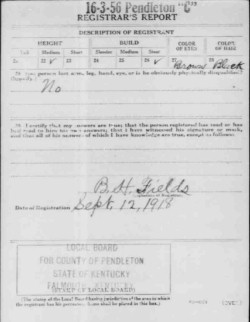 16-3-56 Pendleton C
REGISTRAR'S REPORT
DESCRIPTION OF REGISTRANT
HEIGHT BUILD COLOR OF EYES COLOR OF HAIR
Tall Medium Short Slender Medium Stout
Brown Black
29 Has person lost arm, leg, hand, eye, or is he obviously physically disqualified?
(Specify.)
No
30. I certify that my answers are true; that the person registered has read or has
had read to him his own answers; that I have witnessed his signature or mark,
and that all of his answers of which I have knowledge are true, except as follows:
B. H. Fields
Date of Registration Sept. 12, 1918
LOCAL BOARD
FOR COUNTY OF PENDLETON
STATE OF KENTUCKY
FALMOUTH, KENTUCKY
(STAMP OF LOCAL BOARD)
(The stamp of the Local Board having jurisdiction of the area in which
the registrant has his permanent home shall be placed in this box.)